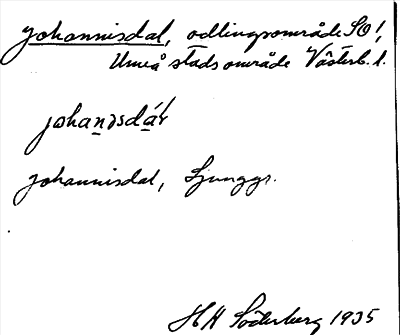 Johannisdal, odlingsområde SO!,
Umeå stadsområde Västerb. l.
johan̲ǝsdá̲r
Johannisdal, Ljunggr.
HH Söderberg 1935